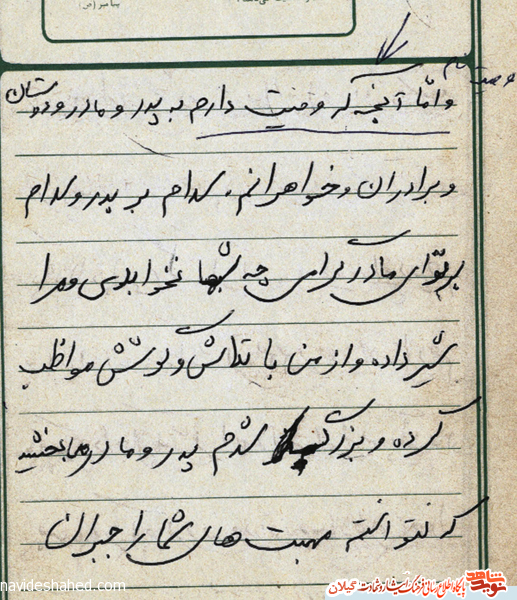 پیامبر (ص)
وصیت نامه
و امّا آنچه که وصیت دارم به پدر و مادر و دوستان
و برادران و خواهرانم. سلام بر پدر و سلام
بر تو ای مادر گرامی چه شبها نخوابیدی و مرا
شیر داده و از من با تلاش و کوشش مواظبت
کرده و بزرگ شدم پدر و مادر مرا ببخشید
که نتوانستم محبت های شما را جبران
navideshahed.com
نوید شاهد
پایگاه اطلاع رسانی فرهنگ ایثار و شهادت گیلان